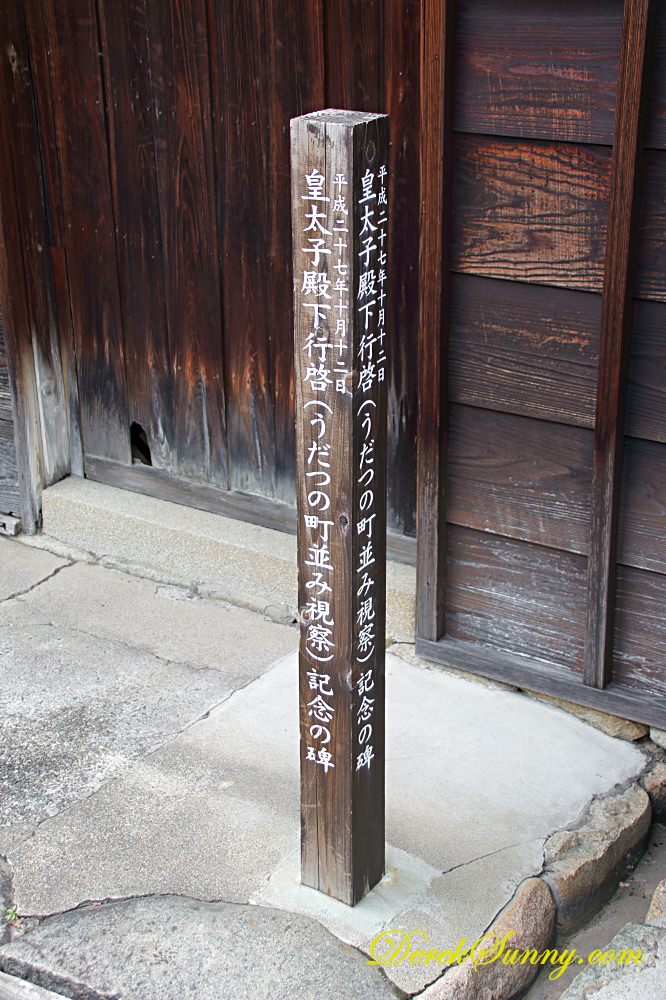 平成二十七年十月十二日
皇太子殿下行啓(うだつの町並み視察)記念の碑
平成二十七年十月十二日
皇太子殿下行啓(うだつの町並み視察)記念の碑
DerekSunny.com